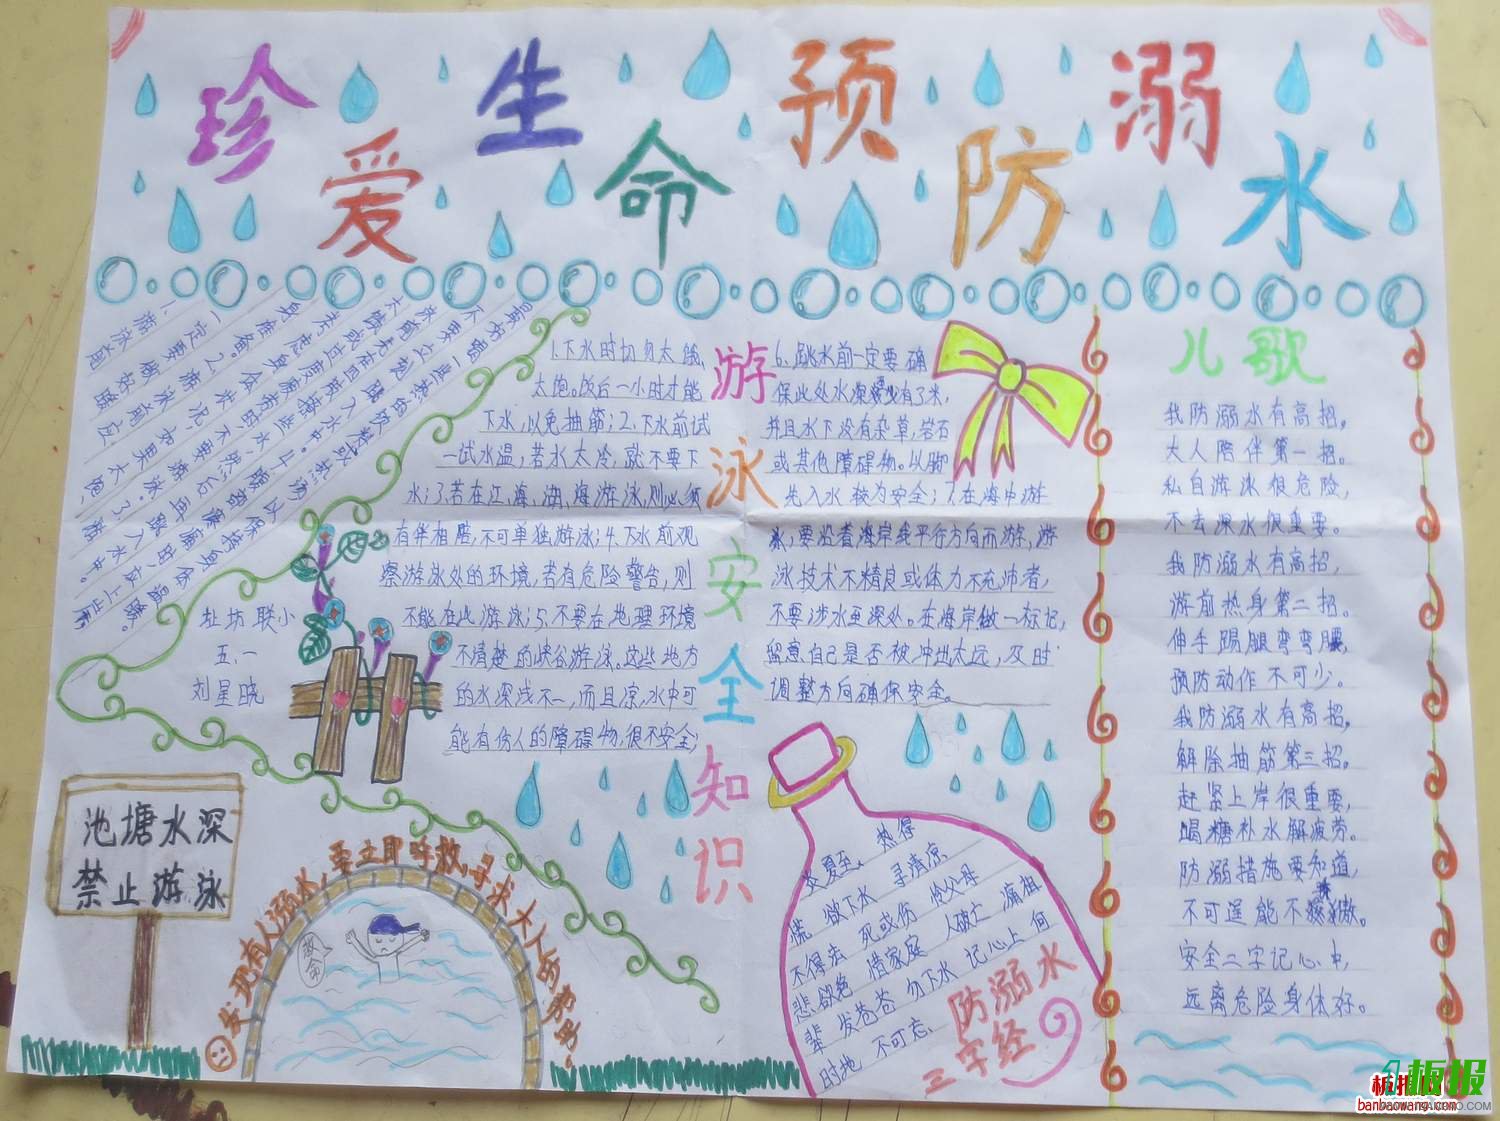 珍爱生命预防溺水
1.游泳前
一定要做好暖
身准备。2.游泳前应
考虑身体状况,如果太饱、
太饿或过度疲劳时,不要游泳。3.游
泳前先在四肢撩些水,然后再跳入水中。
不要立刻跳入水中。
址坊联小
五.一
刘星晓
游泳安全知识
1.下水时切勿太饿、
太饱。饭后一小时才能
下水,以免抽筋;2.下水前试
一试水温,若水太冷,就不要下
水;3.若在江、海、湖、海游泳,则必须
有伴相陪,不可单独游泳;4.下水前观
察游泳处的环境,若有危险警告,则
不能在此游泳;5.不要在地理环境
不清楚的峡谷游泳。这些地方
的水深浅不一,而且凉,水中可
能有伤人的障碍物,很不安全;
6.跳水前一定要确
保此处水深至少有3米,
并且水下没有杂草、岩石
或其他障碍物。以脚
先入水较为安全;7.在海中游
泳,要沿着海岸线平行方向而游,游
泳技术不精良或体力不充沛者,
不要涉水至深处。在海岸做一标记,
留意自己是否被冲出太远,及时
调整方向确保安全。
儿歌
我防溺水有高招。
大人陪伴第一招。
私自游泳很危险,
不去深水很重要。
我防溺水有高招,
游前热身第二招。
伸手踢腿弯弯腰,
预防动作不可少。
我防溺水有高招,
解除抽筋第三招。
赶紧上岸很重要,
喝糖补水解疲劳。
防溺措施要知道,
不可逞能不骄傲。
安全二字记心中,
远离危险身体好。
池塘水深
禁止游泳
发现有人溺水,要立即呼救,寻求大人的帮助。
救命
炎夏至、热得
慌 欲下水 寻清凉
不得法 死或伤 怜父母
悲欲绝 惜家庭 人破亡 痛祖
辈 发苍苍 勿下水 记心上 何
时地 不可忘.
防溺水
三字经
板报
banbaowang.com